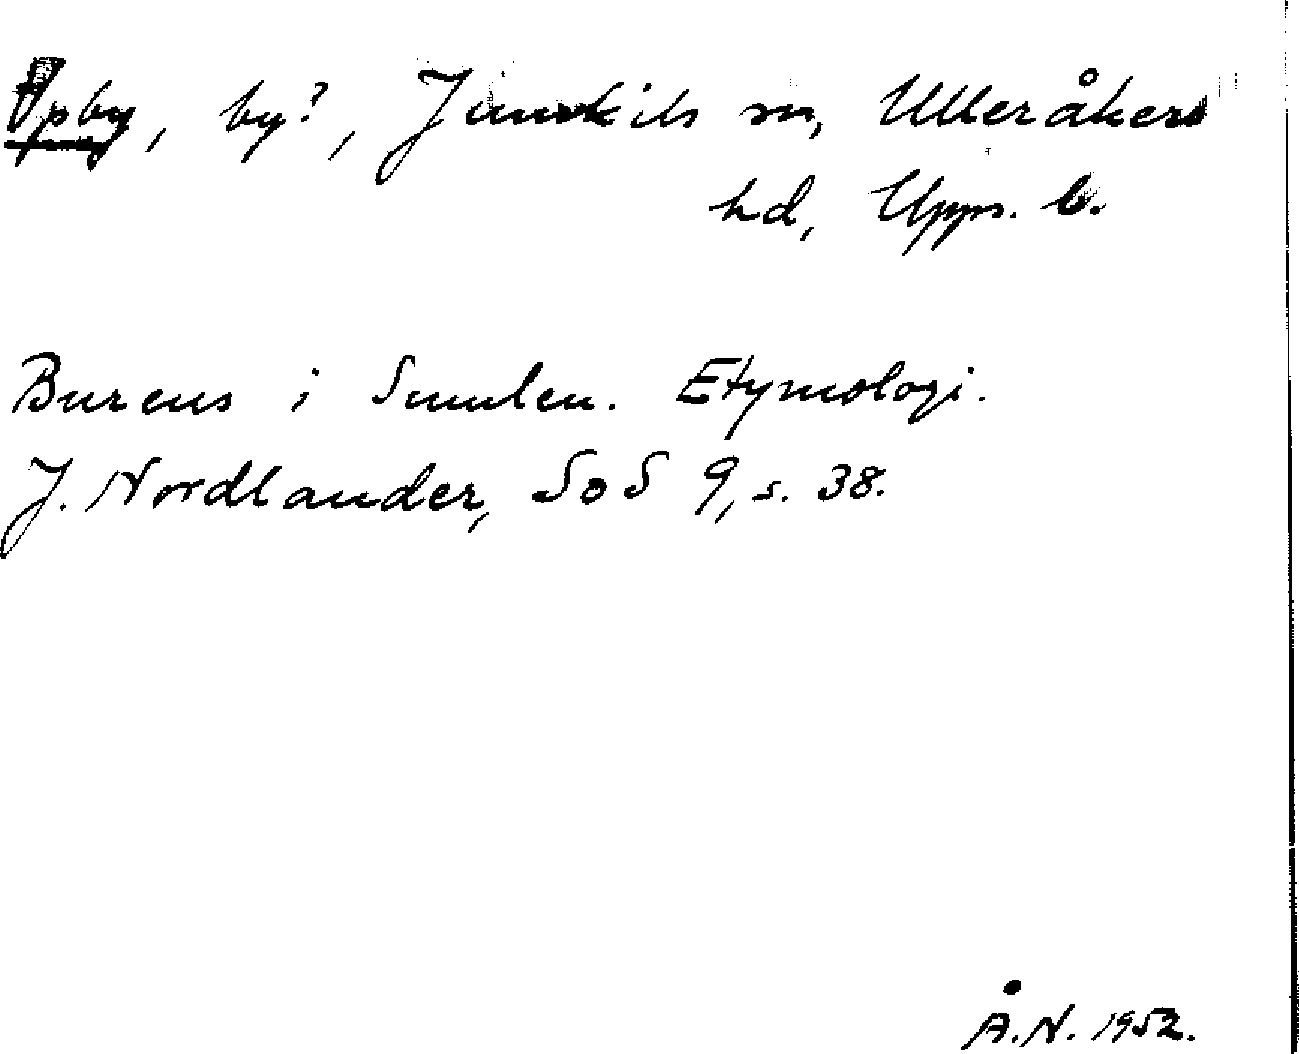 Opby, by?, Jumkils sn, Ulleråkers
hd, Upps. l.
Bureus i Sumlen. Etymologi.
J. Nordlander, SoS 9, s. 38.
Å.N. 1952.